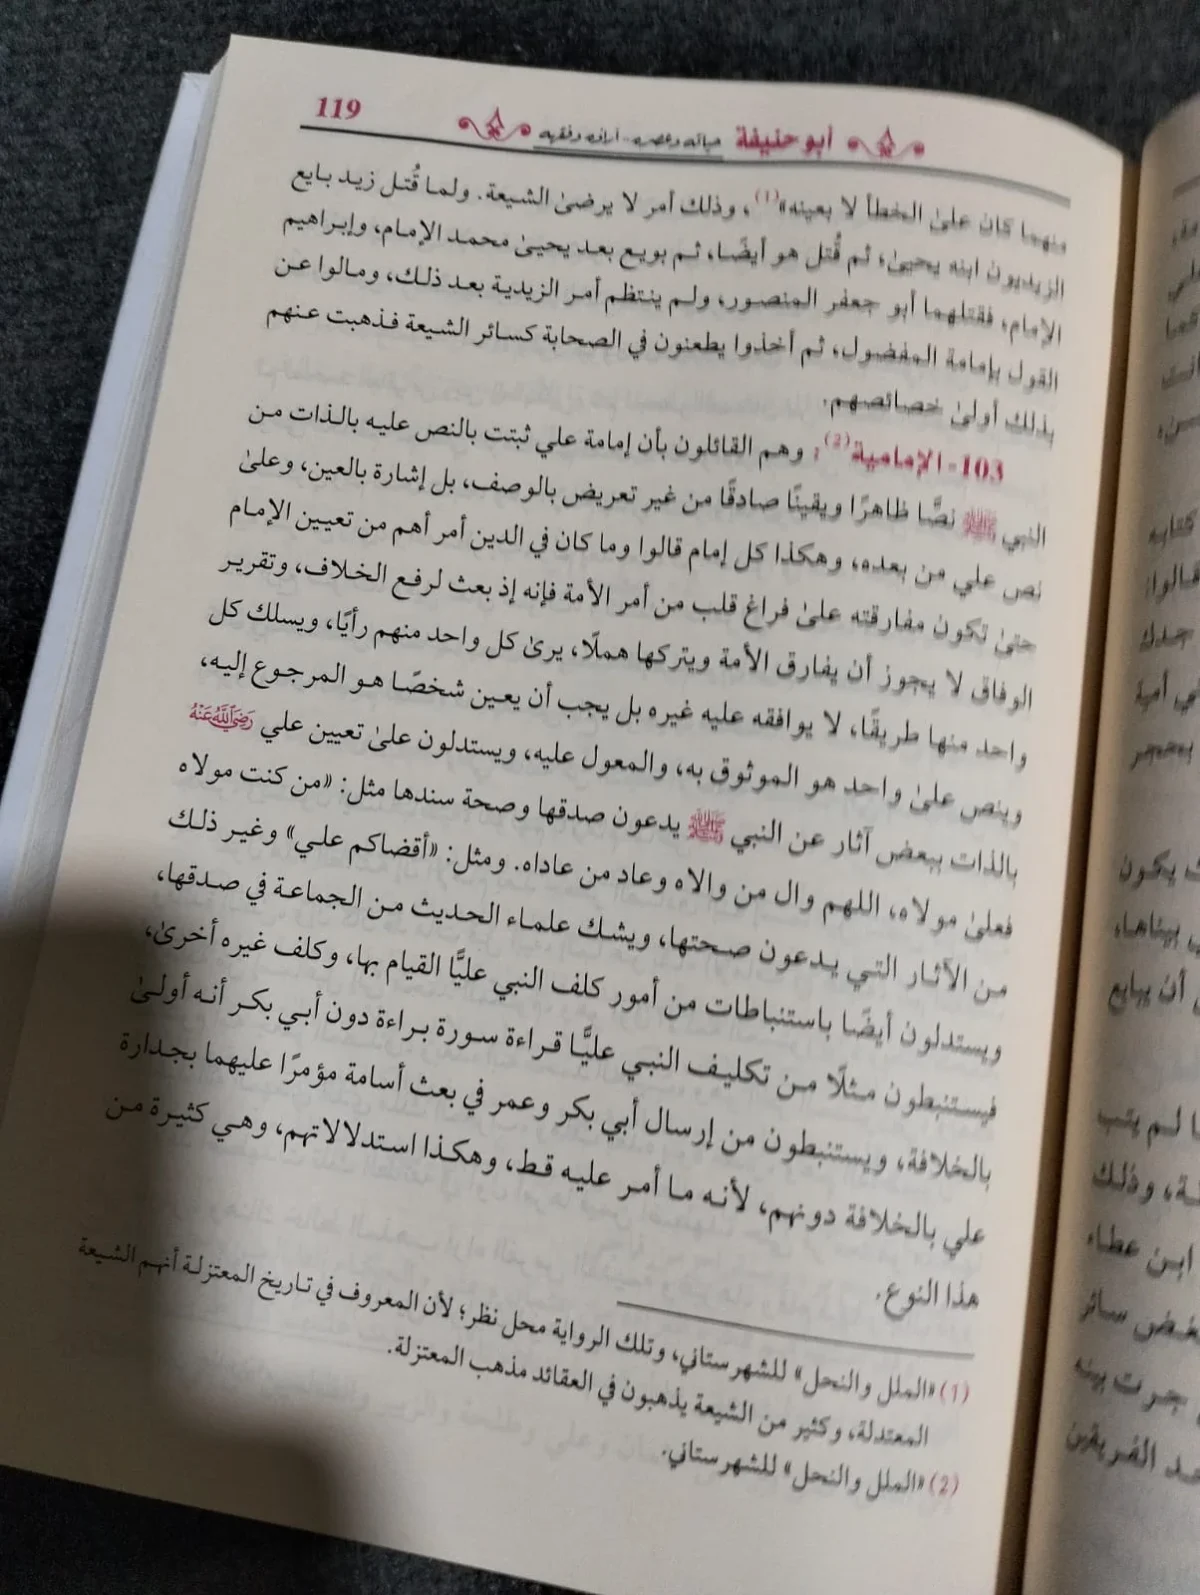 119
أبو حنيفة حياته وعصره - آراؤه وفقهه
منهما كان علىٰ الخطأ لا بعينه»(1)، وذلك أمر لا يرضىٰ الشيعة. ولما قُتل زيد بايع
الزيديون ابنه يحيىٰ، ثم قُتل هو أيضًا، ثم بويع بعد يحيىٰ محمد الإمام، وإبراهيم
الإمام، فقتلهما أبو جعفر المنصور، ولم ينتظم أمر الزيدية بعد ذلك، ومالوا عن
القول بإمامة المفضول، ثم أخذوا يطعنون في الصحابة كسائر الشيعة فذهبت عنهم
بذلك أولىٰ خصائصهم.
103- الإمامية(2): وهم القائلون بأن إمامة علي ثبتت بالنص عليه بالذات من
النبي ﷺ نصًّا ظاهرًا ويقينًا صادقًا من غير تعريض بالوصف، بل إشارة بالعين، وعلىٰ
نص علي من بعده، وهكذا كل إمام قالوا وما كان في الدين أمر أهم من تعيين الإمام
حتىٰ تكون مفارقته علىٰ فراغ قلب من أمر الأمة فإنه إذ بعث لرفع الخلاف، وتقرير
الوفاق لا يجوز أن يفارق الأمة ويتركها هملًا، يرىٰ كل واحد منهم رأيًا، ويسلك كل
واحد منها طريقًا، لا يوافقه عليه غيره بل يجب أن يعين شخصًا هو المرجوع إليه،
وينص علىٰ واحد هو الموثوق به، والمعول عليه، ويستدلون علىٰ تعيين علي رَضِيَ اللَّهُ عَنْهُ
بالذات ببعض آثار عن النبي ﷺ يدعون صدقها وصحة سندها مثل: «من كنت مولاه
فعلىٰ مولاه، اللهم وال من والاه وعاد من عاداه. ومثل: «أقضاكم علي» وغير ذلك
من الآثار التي يدعون صحتها، ويشك علماء الحديث من الجماعة في صدقها،
ويستدلون أيضًا باستنباطات من أمور كلف النبي عليًّا القيام بها، وكلف غيره أخرىٰ،
فيستنبطون مثلًا من تكليف النبي عليًّا قراءة سورة براءة دون أبي بكر أنه أولىٰ
بالخلافة، ويستنبطون من إرسال أبي بكر وعمر في بعث أسامة مؤمرًا عليهما بجدارة
علي بالخلافة دونهم، لأنه ما أمر عليه قط، وهكذا استدلالاتهم، وهي كثيرة من
هذا النوع.
(1) «الملل والنحل» للشهرستاني، وتلك الرواية محل نظر؛ لأن المعروف في تاريخ المعتزلة أنهم الشيعة
المعتدلة، وكثير من الشيعة يذهبون في العقائد مذهب المعتزلة.
(2) «الملل والنحل» للشهرستاني.
كتابه
قالوا:
جدك
في أمية
يكون
أن يبايع
لم يتب
وذلك
ابن عطاء
سائر
جرت بينه
الفريقين